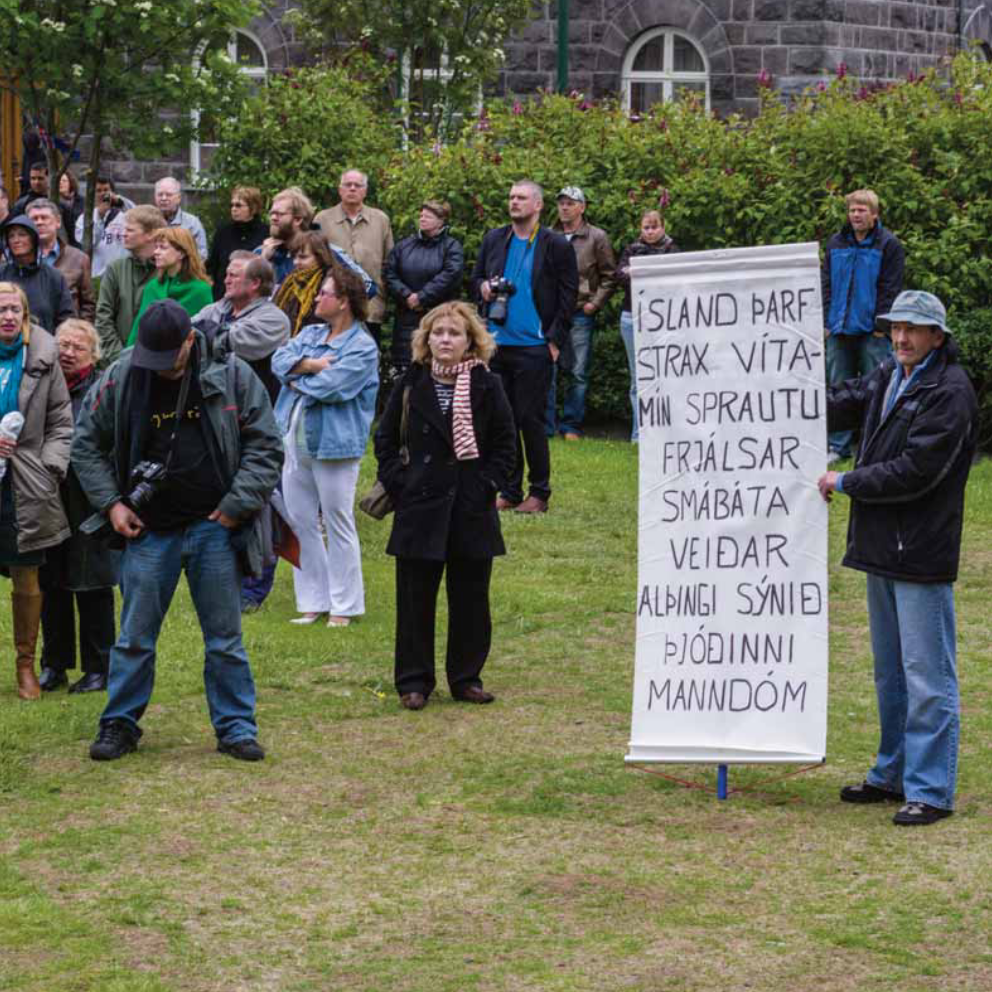 ÍSLAND ÞARF
STRAX VÍTA-
MÍN SPRAUTU
FRJÁLSAR
SMÁBÁTA
VEIÐAR
ALÞINGI SÝNIÐ
ÞJÓÐINNI
MANNDÓM